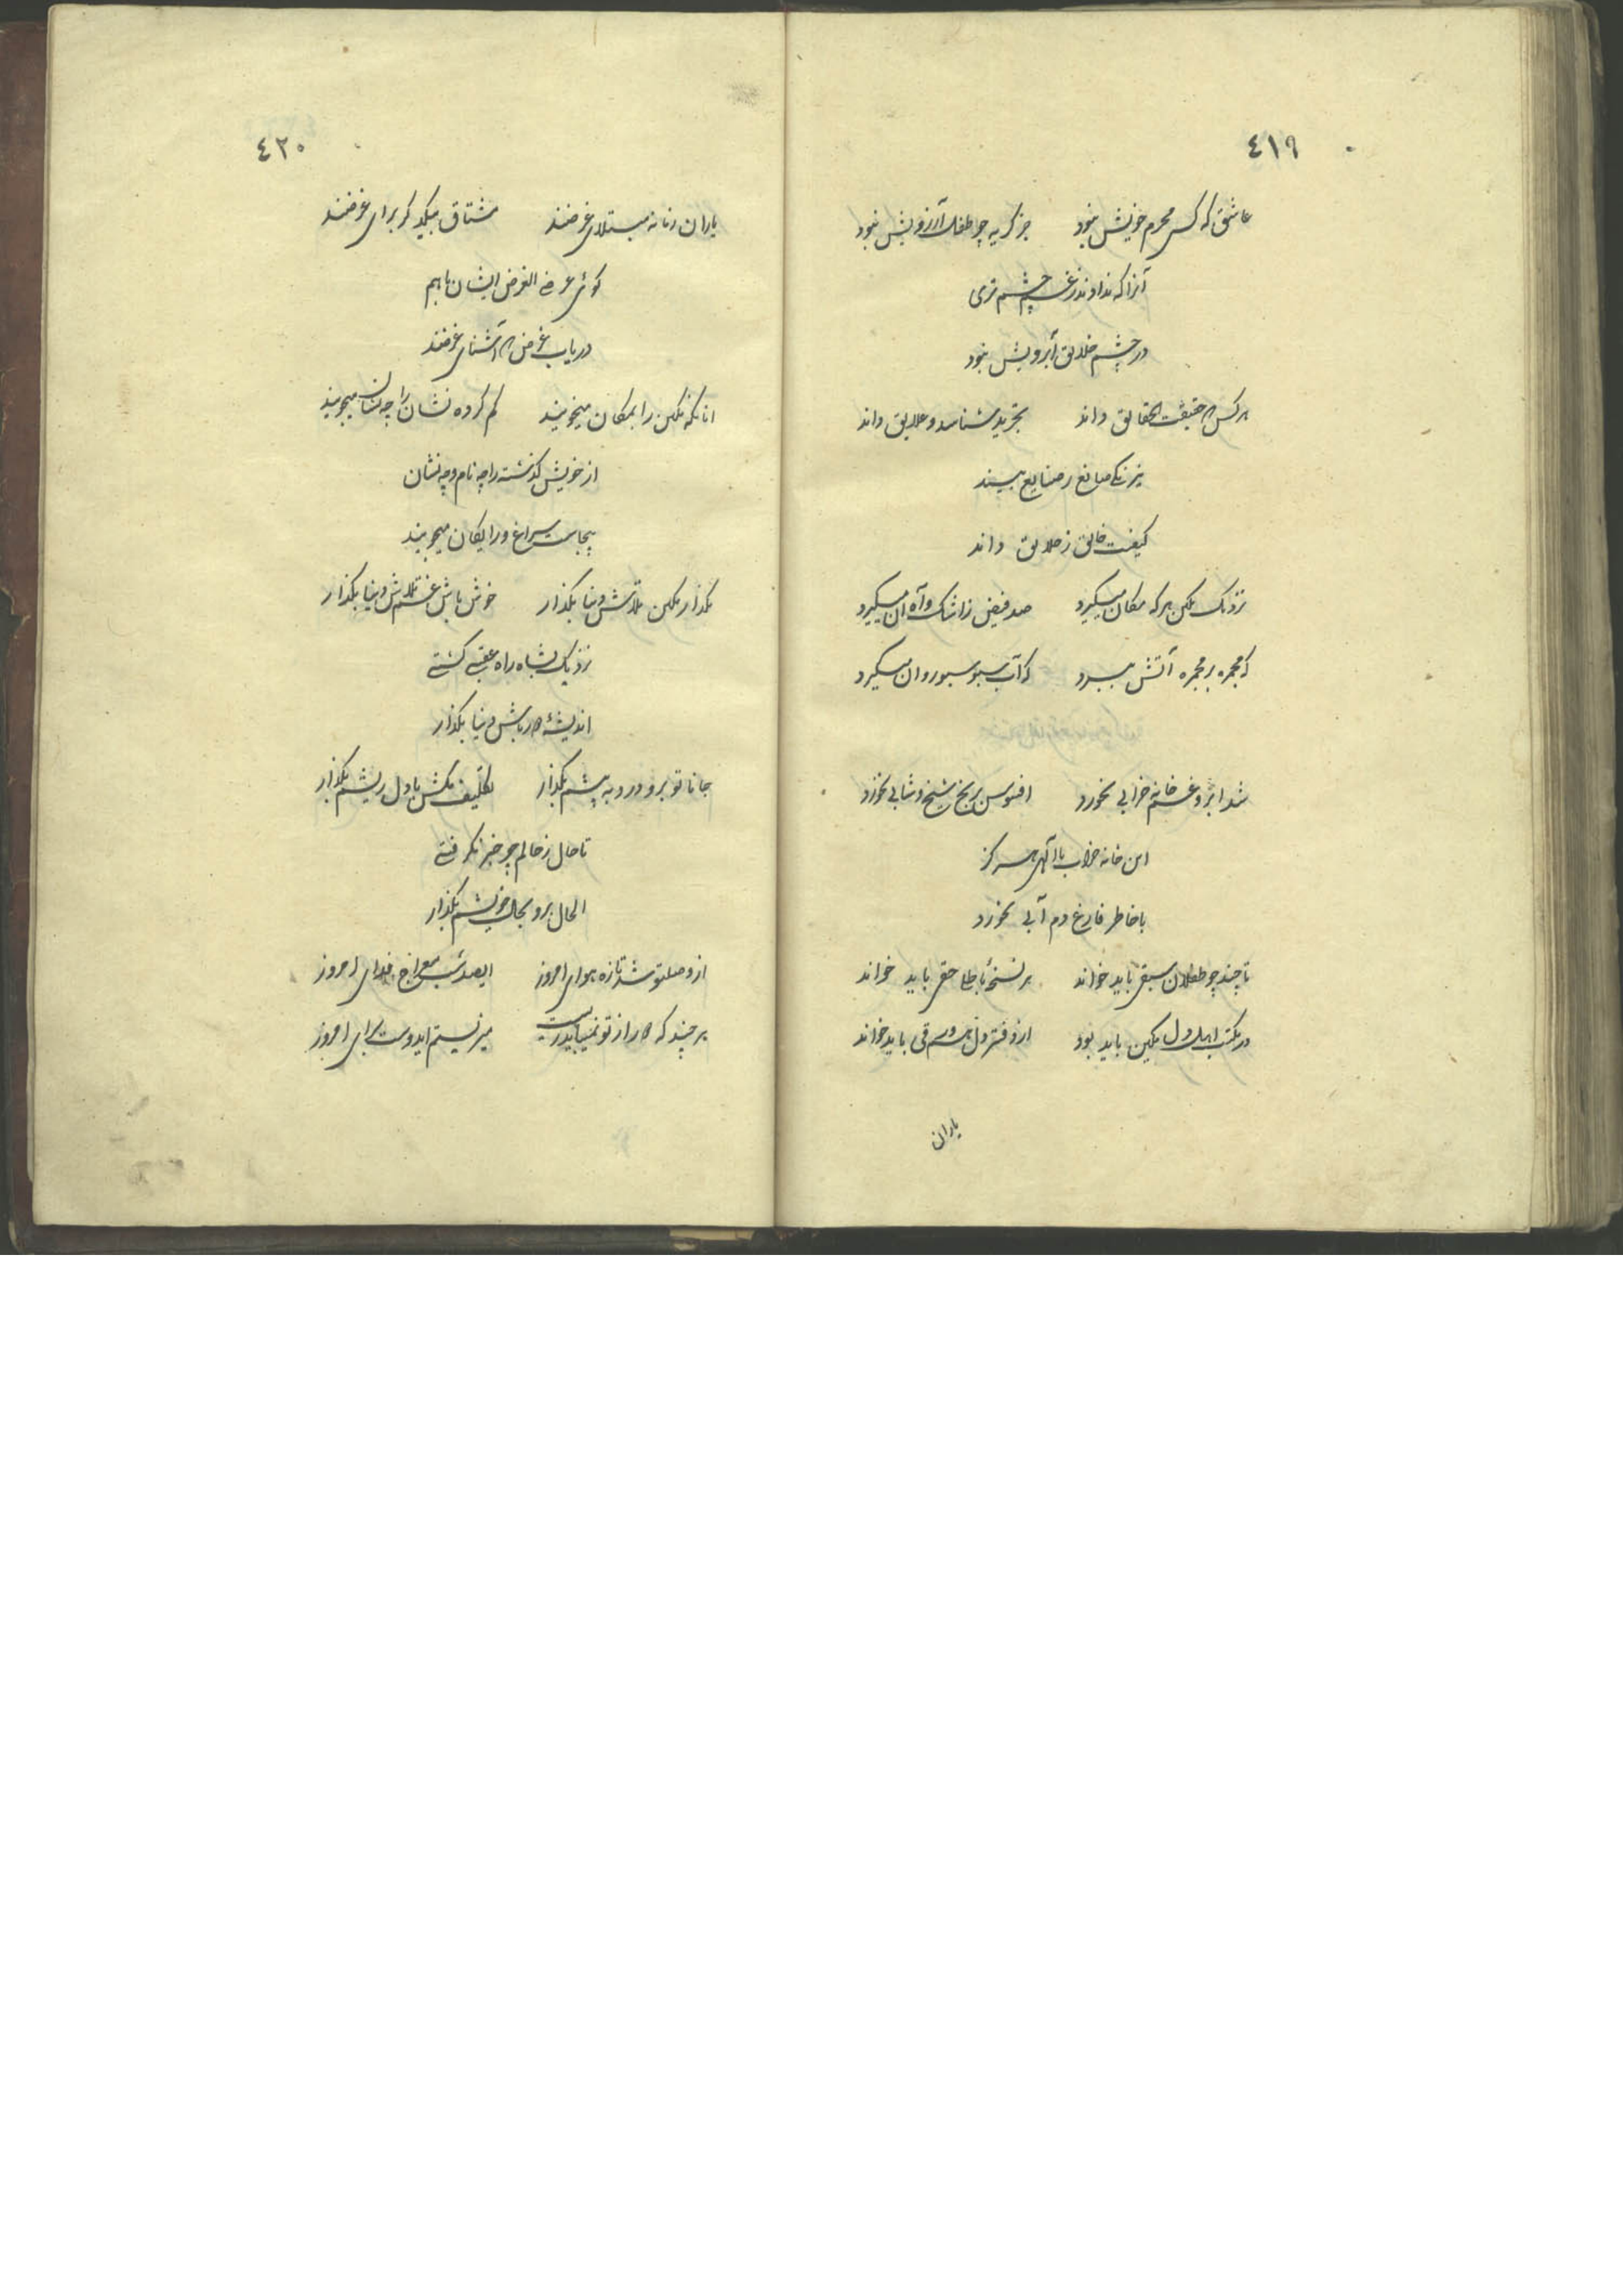 ٤١٩
عاشق که کس محرم خویش نبود جز گریه چو طفلک آرزویش نبود
آنرا که نداوند زغم چشم تری
در چشم خلایق آبرویش نبود
هر کس که حقیقت الحقایق داند تجرید شناسد و علایق داند
نیرنگ صانع ز صنایع بیند
کیفیت خالق ز خلایق داند
نزدیک مکین هرکه مکان میگیرد صد فیض ز اشک و آه آن میگیرد
که مجمره بر مجمره آتش ببرد که آب سبو سبو روان میگیرد
شد ابر و غم خانه خرابی نخورد افسوس بر شیخ و شابی نخورد
این خانه خراب با هرگز
با خاطر فارغ دم آبی نخورد
تا چند چو طفلان سبقی باید خواند بر نسخهٔ باطل حقی باید خواند
در مکتب اهل دل مکین باید بود از دفتر دل ورقی باید خواند
یاران
٤٢٠
یاران زمانه مبتلای غرضند مشتاق بیکدیگر برای غرضند
گوئی عرض الغرض ایشان باهم
دریاب غرض که آشنای غرضند
انانکه مکین را بمکان میجویند گم کرده نشان را چه نشان میجویند
از خویش گذشته را چه نام و چه نشان
بیجاست سراغ و رایگان میجویند
بگذار مکین تلاش دنیا بگذار خوش باش غم تلاش دنیا بگذار
نزدیک بشاهراه عقبی گشتی
اندیشهٔ دنیا بگذار
جانا تو برو درد به پیشم بگذار تکلیف مکش با دل ریشم بگذار
تا حال ز حالم چو خبر نگرفتی
الحال برو بحال خویشم بگذار
از وصل تو شد تازه هوای امروز ایصد شب معراج فدای امروز
هر چند که کار از تو نمیباید زیست میزیستم ایدوست برای امروز